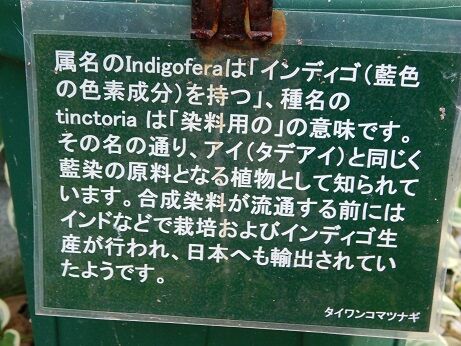 属名のIndigoferaは「インディゴ（藍色
の色素成分）を持つ」、種名の
tinctoria は「染料用の」の意味です。
その名の通り、アイ（タデアイ）と同じく
藍染の原料となる植物として知られて
います。合成染料が流通する前には
インドなどで栽培およびインディゴ生
産が行われ、日本へも輸出されてい
たようです。
タイワンコマツナギ